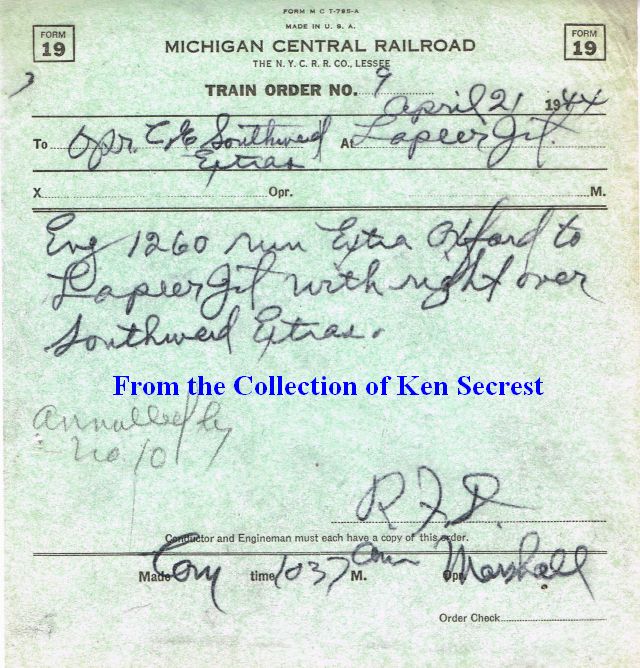 FORM M C T-785-A
MADE IN U. S. A.
FORM 19
FORM 19
MICHIGAN CENTRAL RAILROAD
THE N. Y. C. R. R. CO., LESSEE
TRAIN ORDER NO. 9
April 21 1944
To Opr. C&E Southward Extras At Lapeer Jct.
X Opr. M.
Eng 1260 run Extra Oxford to
Lapeer Jct with right over
Southward Extras.
From the Collection of Ken Secrest
Annulled by
No. 10
R.J.D.
Conductor and Engineman must each have a copy of this order.
Made Com time 1037 am M. Opr. Marshall
Order Check